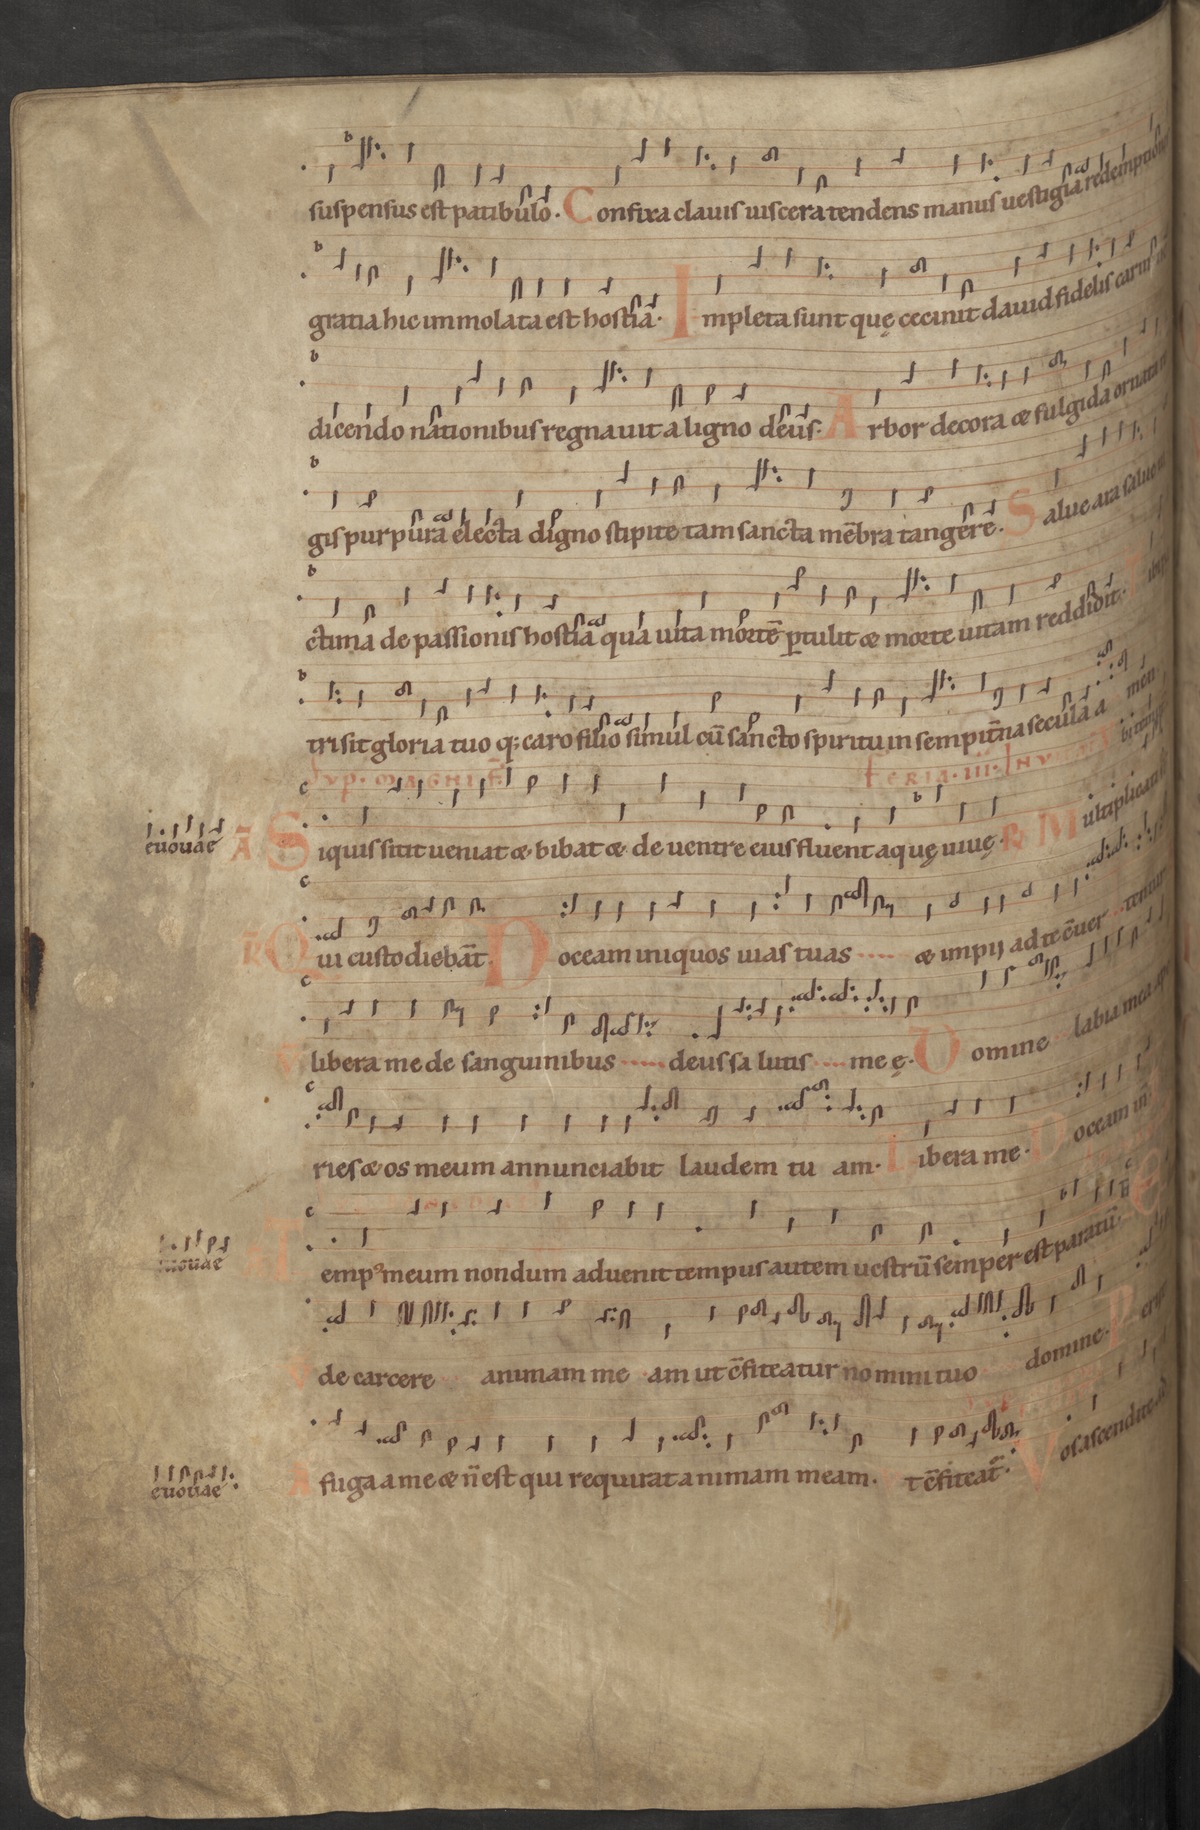 suspensus est patibulo. Confixa clauis uiscera tendens manus uestigia redemptionis
gratia hic immolata est hostia. Impleta sunt quę cecinit dauid fidelis
dicendo nationibus regnauit a ligno deus. Arbor decora & fulgida ornata
gis purpura electa digno stipite tam sancta mēbra tangere. Salue ara
ctima de passionis hostia qua uita mortē ꝑtulit & morte uitam reddidit.
tri sit gloria tuo q; caro filio simul cū sancto spiritu in sempit̄na secula a men
Sup. MAGNIF̄ FERIA·III· INV
euouae A̅ Siquis sitit ueniat & bibat & de uentre eius fluent aquę uiuę. R̄ Multiplicati
R̄ Qui custodiebāt. Doceam iniquos uias tuas & impij ad te c̄uer tentur
V̄ libera me de sanguinibus deus sa lutis me ę. Domine labia mea
ries & os meum annunciabit laudem tu am. Libera me. Doceam
euouae Temp⁹ meum nondum aduenit tempus autem uestrū semper est paratū.
de carcere animam me am ut c̄fiteatur nomini tuo domine.
euouae A fuga a me & n̄ est qui requirat animam meam. t c̄fiteat̄. Vos ascendite